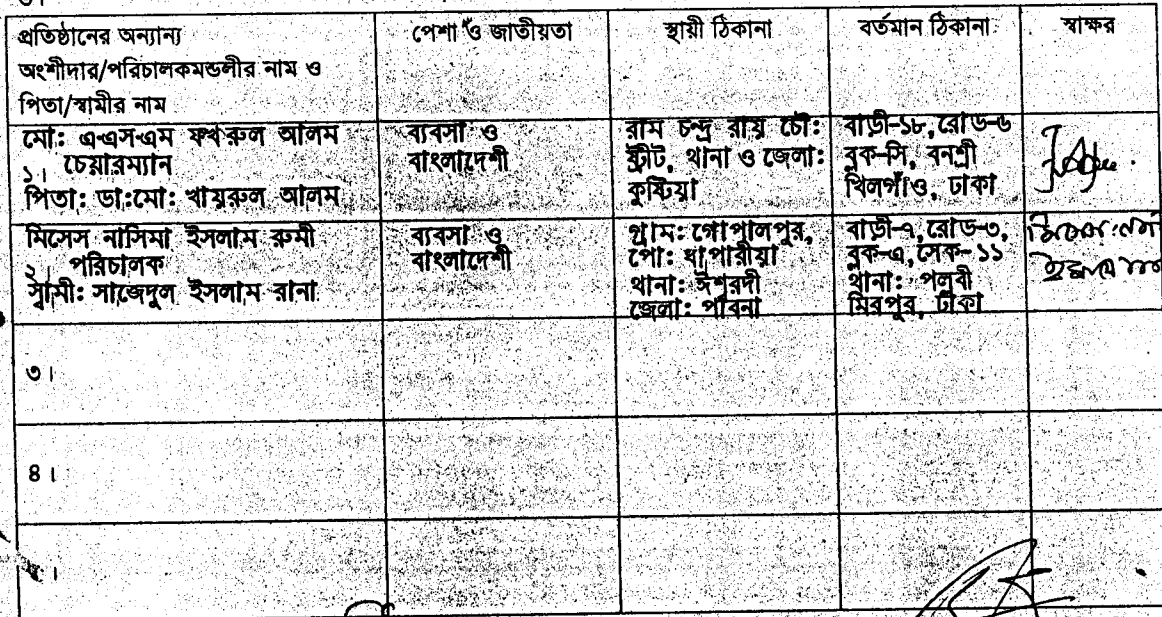 প্রতিষ্ঠানের অন্যান্য
অংশীদার/পরিচালকমন্ডলীর নাম ও
পিতা/স্বামীর নাম
পেশা ও জাতীয়তা
স্থায়ী ঠিকানা
বর্তমান ঠিকানা
স্বাক্ষর
মো: এ-এস-এম ফখরুল আলম
১। চেয়ারম্যান
পিতা: ডা:মো: খায়রুল আলম
ব্যবসা ও
বাংলাদেশী
রাম চন্দ্র রায় চৌ:
স্ট্রীট, থানা ও জেলা:
কুষ্টিয়া
বাড়ী-১৮,রোড-৬
ব্লক-সি, বনশ্রী
খিলগাঁও, ঢাকা
মিসেস নাসিমা ইসলাম রুমী
২। পরিচালক
স্বামী: সাজেদুল ইসলাম রানা
ব্যবসা ও
বাংলাদেশী
গ্রাম: গোপালপুর,
পো: ধাপারীয়া
থানা: ঈশ্বরদী
জেলা: পাবনা
বাড়ী-৭,রোড-৩,
ব্লক-এ,সেক-১১
থানা: পলবী
মিরপুর, ঢাকা
৩।
৪।